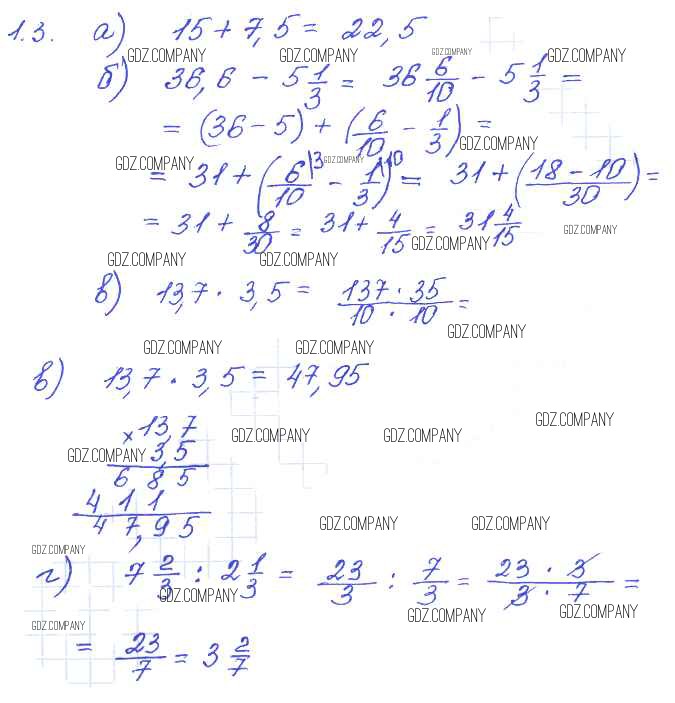 1.3. а) 15 + 7,5 = 22,5
GDZ.COMPANY GDZ.COMPANY GDZ.COMPANY GDZ.COMPANY
б) 36,6 - 5 1/3 = 36 6/10 - 5 1/3 =
= (36 - 5) + (6/10 - 1/3) =
GDZ.COMPANY
GDZ.COMPANY GDZ.COMPANY
= 31 + (6/10 |3 - 1/3 |10) = 31 + (18 - 10/30) =
= 31 + 8/30 = 31 + 4/15 = 31 4/15
GDZ.COMPANY GDZ.COMPANY
GDZ.COMPANY GDZ.COMPANY
в) 13,7 · 3,5 = 137 · 35/10 · 10 =
GDZ.COMPANY
GDZ.COMPANY GDZ.COMPANY
в) 13,7 · 3,5 = 47,95
GDZ.COMPANY
× 13,7
GDZ.COMPANY GDZ.COMPANY
GDZ.COMPANY 3,5
6 8 5
4 1 1
4 7,9 5
GDZ.COMPANY GDZ.COMPANY
GDZ.COMPANY
г) 7 2/3 : 2 1/3 = 23/3 : 7/3 = 23 · 3/3 · 7 =
GDZ.COMPANY GDZ.COMPANY GDZ.COMPANY
GDZ.COMPANY
= 23/7 = 3 2/7